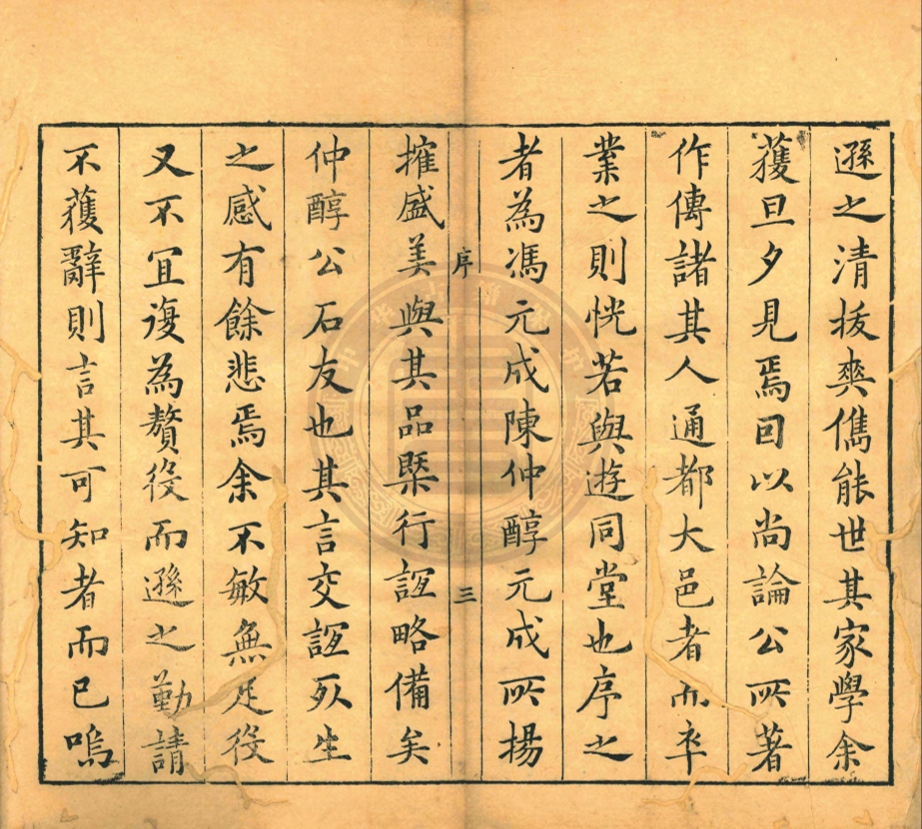 遜之清拔奭儁能世其家學余
獲旦夕見焉因以尚論公所著
作傳諸其人通都大邑者而卒
業之則恍若與遊同堂也序之
者為馮元成陳仲醇元成所揚
序
三
搉盛美與其品槩行誼略備矣
仲醇公石友也其言交誼死生
之感有餘悲焉余不敏無足役
又不宜復為贅役而遜之勤請
不獲辭則言其可知者而已嗚